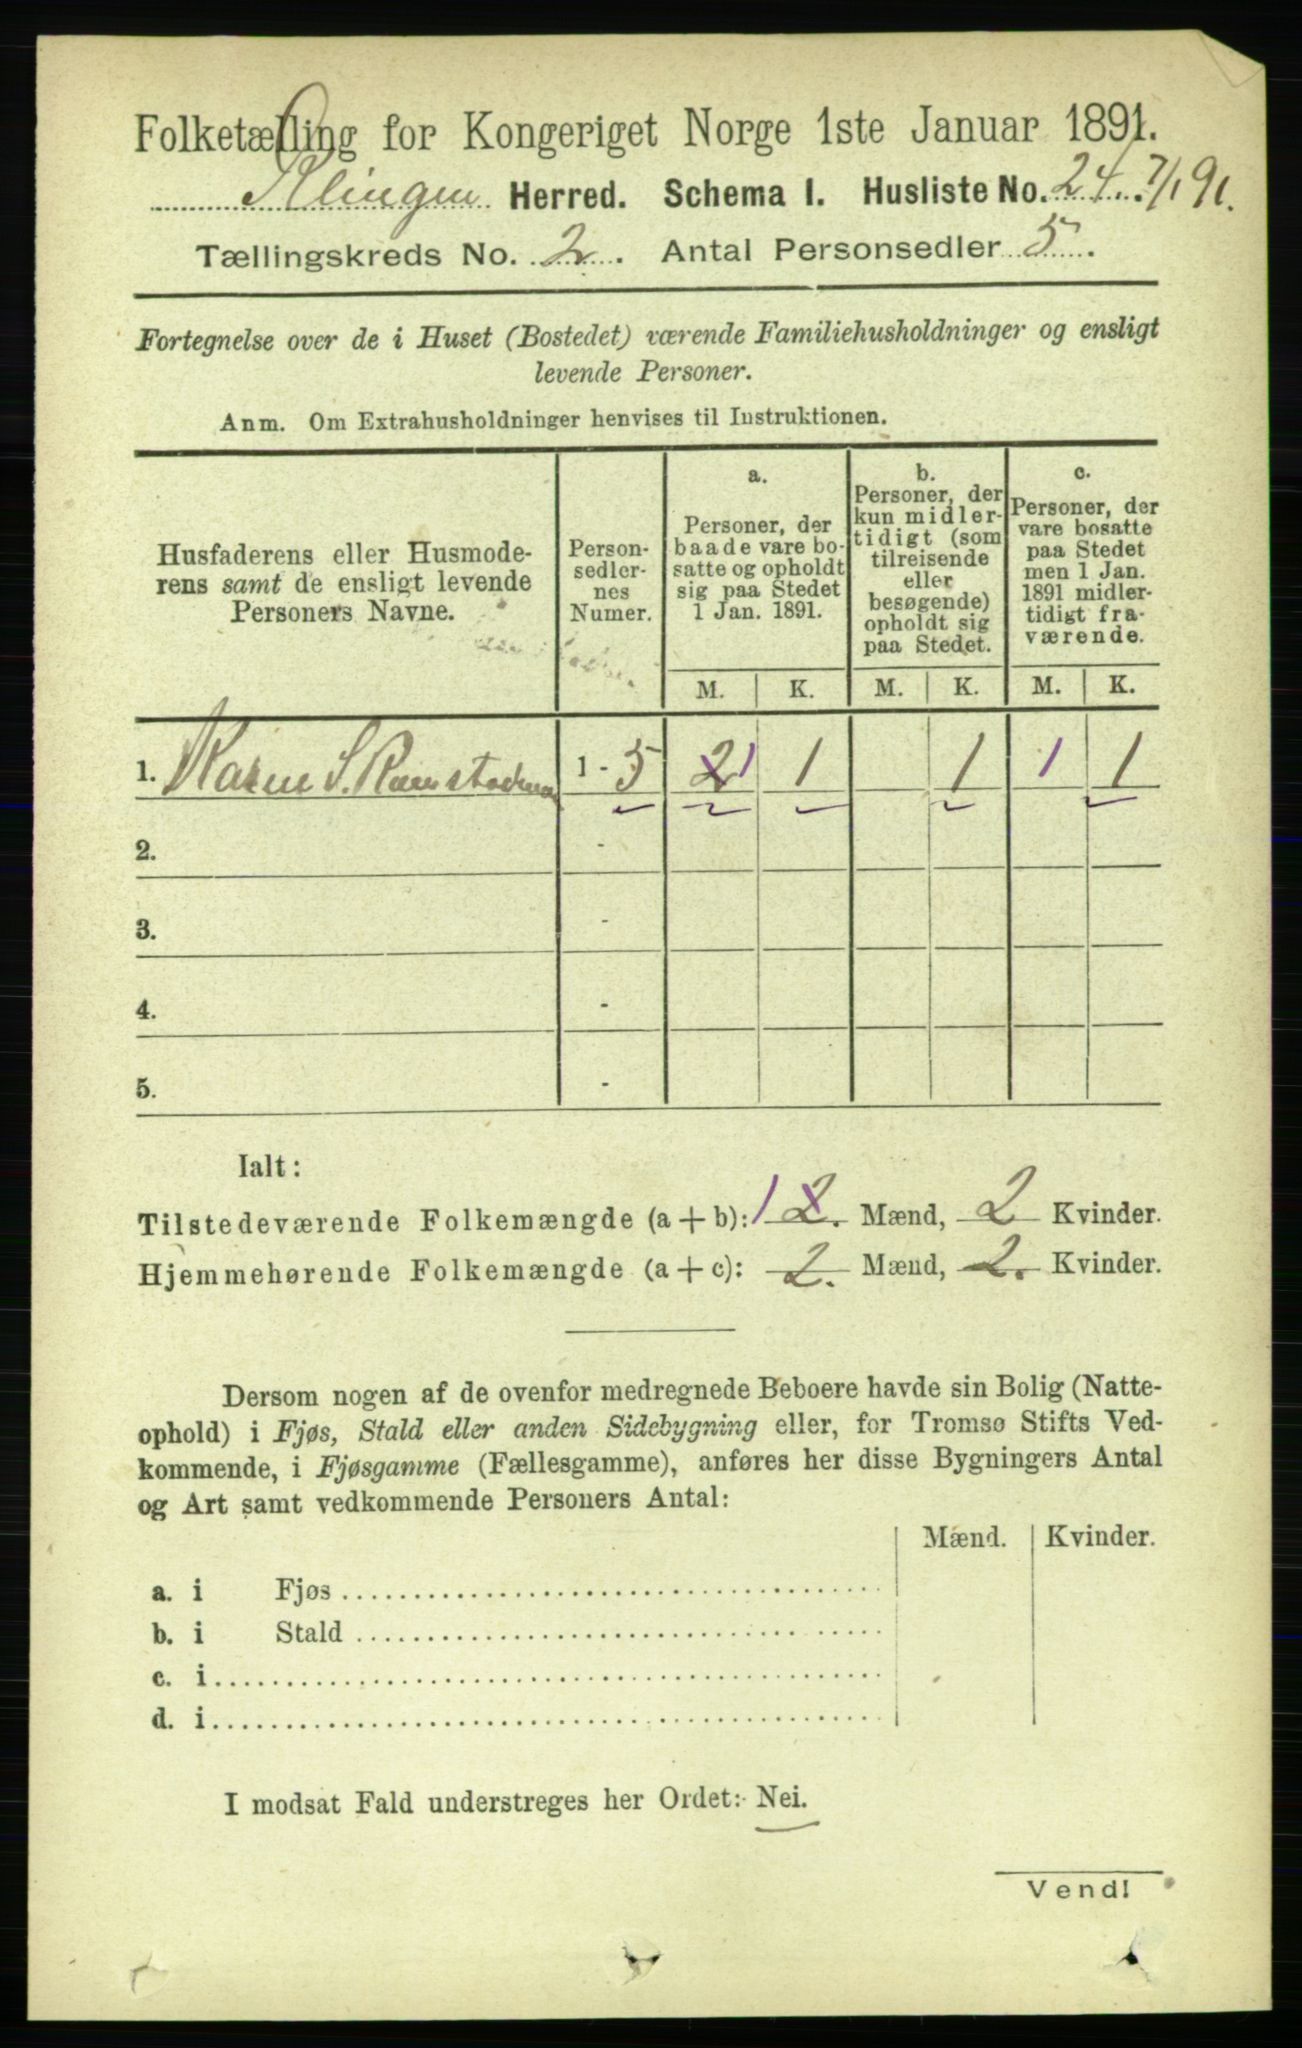 Folketælling for Kongeriget Norge 1ste Januar 1891.
Klingen Herred. Schema I. Husliste No. 24. 7/1 91.
Tællingskreds No. 2. Antal Personsedler 5.
Fortegnelse over de i Huset (Bostedet) værende Familiehusholdninger og ensligt
levende Personer.
Anm. Om Extrahusholdninger henvises til Instruktionen.
Husfaderens eller Husmode-
rens samt de ensligt levende
Personers Navne.
Person-
sedler-
nes
Numer.
a.
Personer, der
baade vare bo-
satte og opholdt
sig paa Stedet
1 Jan. 1891.
b.
Personer, der
kun midler-
tidigt (som
tilreisende
eller
besøgende)
opholdt sig
paa Stedet.
c.
Personer, der
vare bosatte
paa Stedet
men 1 Jan.
1891 midler-
tidigt fra-
værende.
M. K. M. K. M. K.
1. Karen S. 1 - 5 2 1 1 1 1 1
2. -
3. -
4. -
5. -
Ialt:
Tilstedeværende Folkemængde (a + b): 1 2. Mænd, 2 Kvinder.
Hjemmehørende Folkemængde (a + c): 2. Mænd, 2. Kvinder.
Dersom nogen af de ovenfor medregnede Beboere havde sin Bolig (Natte-
ophold) i Fjøs, Stald eller anden Sidebygning eller, for Tromsø Stifts Ved-
kommende, i Fjøsgamme (Fællesgamme), anføres her disse Bygningers Antal
og Art samt vedkommende Personers Antal:
Mænd. Kvinder.
a. i Fjøs
b. i Stald
c. i
d. i
I modsat Fald understreges her Ordet: Nei.
Vend!